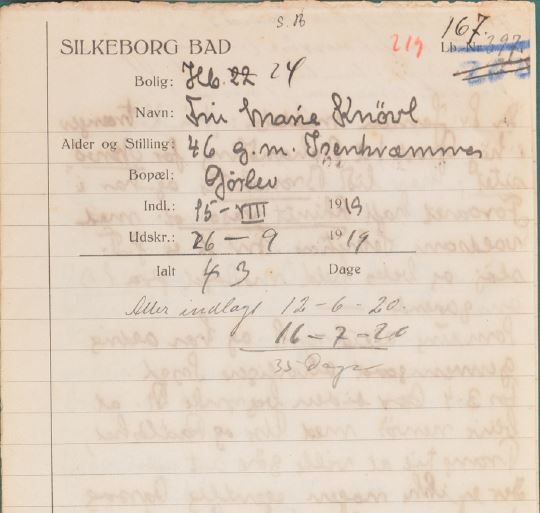 S.B
167.
SILKEBORG BAD 219 Lb. Nr. 397
Bolig: Hb. 22 24
Navn: Fru Marie Knövl
Alder og Stilling: 46 g. m. Isenkræmmer
Bopæl: Gørlev
Indl.: 15 - VIII 1919
Udskr.: 26 - 9 1919
Ialt 43 Dage
Atter indlagt 12-6-20.
16-7-20
35 Dage